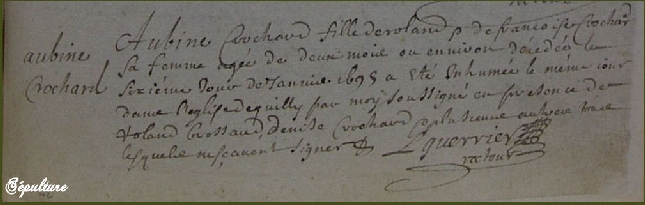 aubine
Crochard
Aubine Crochard fille de roland & de francoise Crochard
sa femme agee de deux mois ou environ decedée le
sixiéme jour de Janvier 1695 a Eté Inhumée le même iour
dans l'eglise de quilly par moy soussigné en presence de
Roland Crossard, denise Crochard & plusieurs autres
lesquels ne sçavent signer
L guerrier
recteur
Sépulture